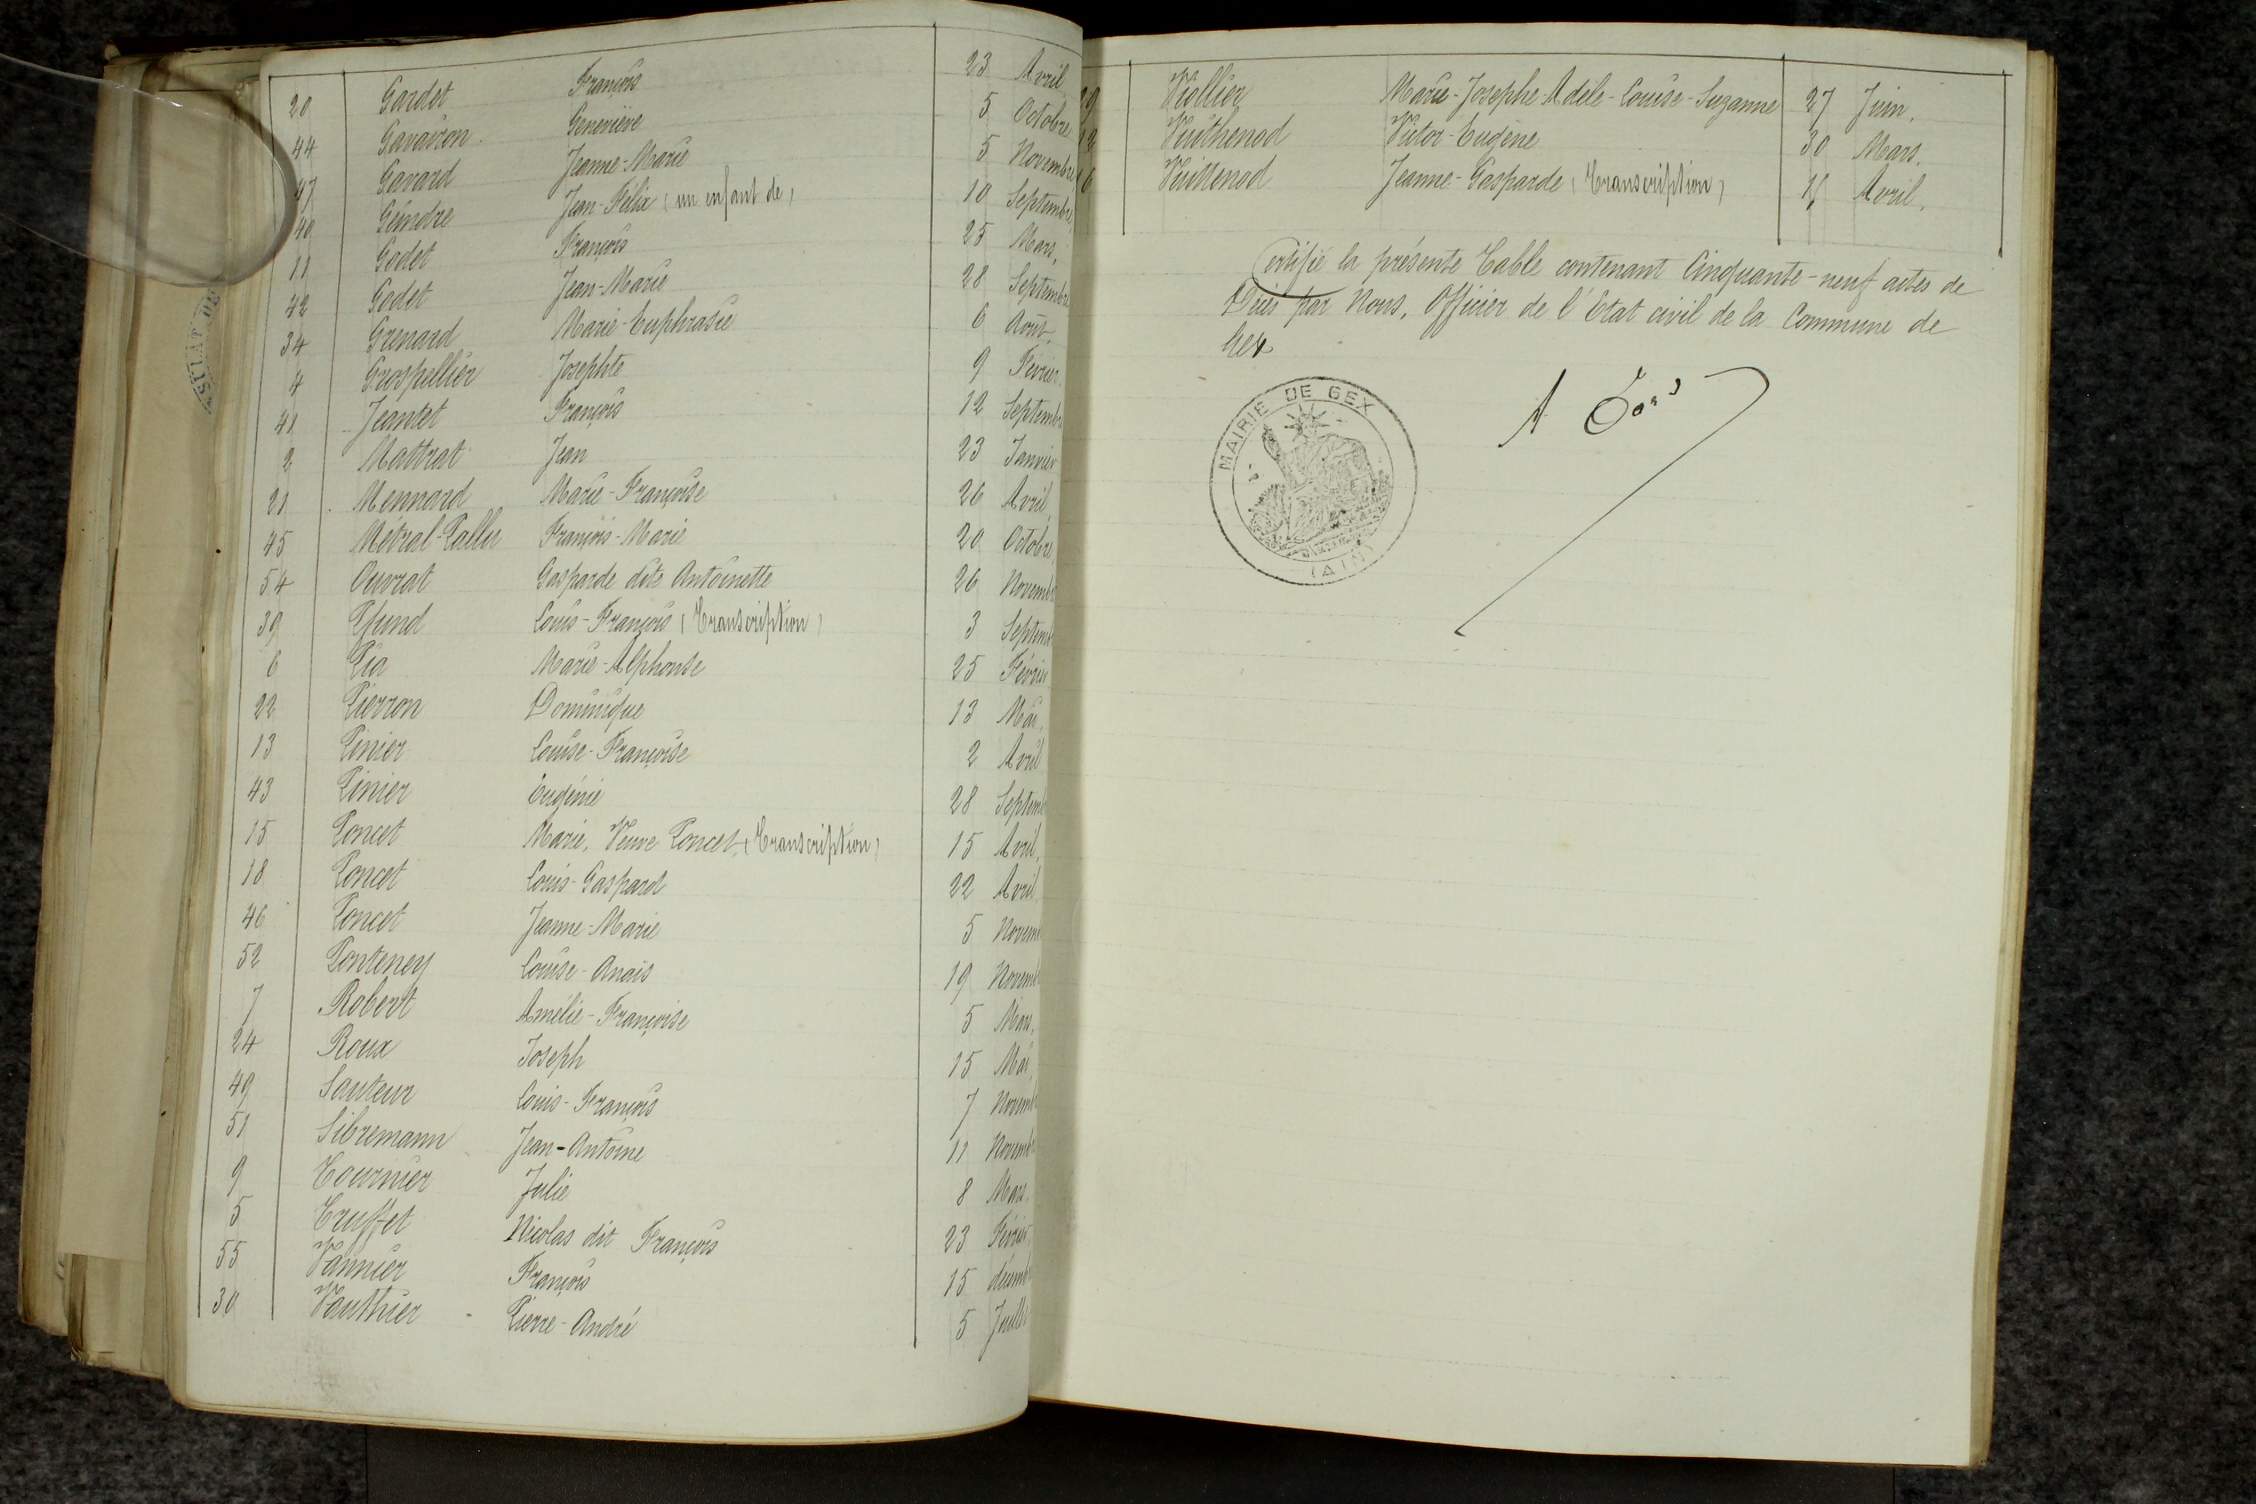 20 Gardet François 23 Avril
44 Gavairon Geneviève 5 Octobre
47 Gavard Jeanne-Marie 5 Novembre
40 Gendre Jean-Félix (un enfant de) 10 Septembre
11 Godet François 25 Mars,
42 Godet Jean-Marie 28 Septembre
34 Grenard Marie-Euphrasie 6 Août,
4 Grospellier Josephte 9 Février
41 Jeantet François 12 Septemb
2 Mattrat Jean 23 Janvier
21 Mennard Marie-Françoise 26 Avril,
45 Métral François-Marie 20 Octobre,
54 Ouvrat Gasparde dite Antoinette 26 Novemb
39 Pfund Louis-François (Transcription) 3 Septemb
6 Pia Marie-Alphonse 25 Févrie
22 Pierron Dominique 13 Mai,
13 Pinier Louise-Françoise 2 Avril
43 Pinier Eugénie 28 Septemb
15 Poncet Marie, Veuve Poncet, (Transcription) 15 Avril,
18 Poncet Louis-Gaspard 22 Avril,
46 Poncet Jeanne-Marie 5 Novem
52 Ponteney Louise-Anaïs 19 Novemb
7 Robert Amélie-Françoise 5 Mars,
24 Roux Joseph 15 Mai,
49 Sauteur Louis-François 7 Novemb
51 Sibremann Jean-Antoine 11 Novemb
9 Tournier Julie 8 Mars.
5 Truffet Nicolas dit François 23 Févrie
55 Vannier François 15 décemb
30 Vauthier Pierre-André 5 Juille
9 Viollier Marie-Josephe-Adèle-Louise-Suzanne 27 Juin.
2 Vuithenod Victor-Eugène 30 Mars.
6 Vuittenod Jeanne-Gasparde (Transcription) Avril.
Certifié la présente Table contenant Cinquante-neuf actes de
Décès par Nous, Officier de l'Etat civil de la Commune de
Gex
MAIRIE DE GEX
(AIN)